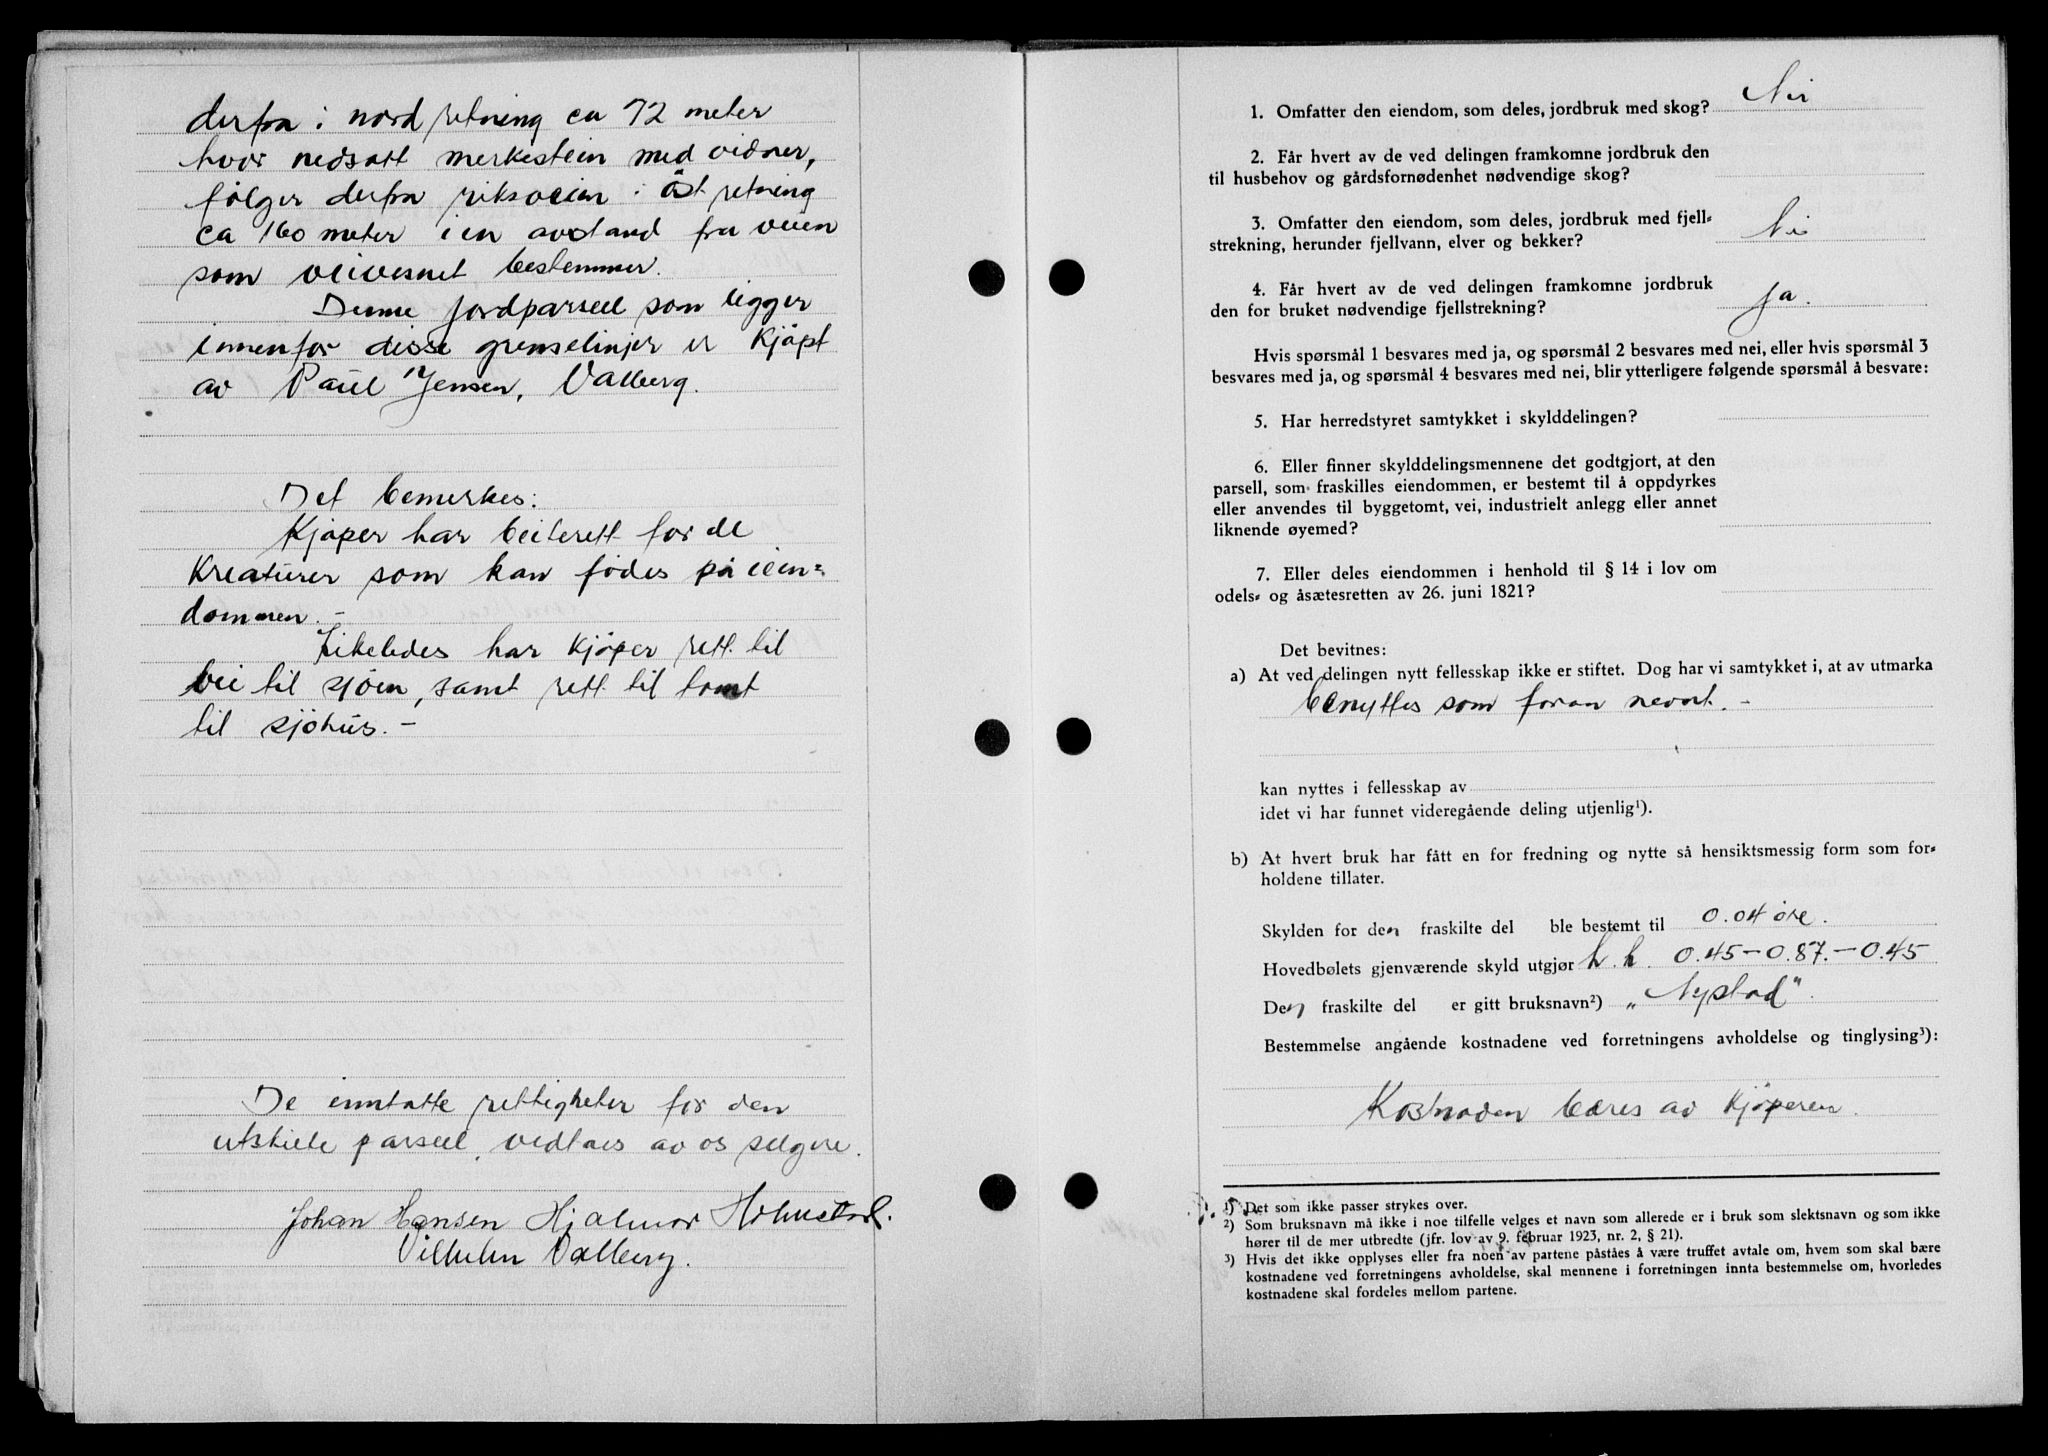 derfra i nord retning ca 72 meter
hvor nedsatt merkestein med vidner,
følger derfra riksveien i öst retning
ca 160 meter i en avstand fra veien
som veivesnet bestemmer.
Denne jordparsell som ligger
innenfor disse grenselinjer er kjöpt
av Paul Jensen, Valberg.
Det bemerkes:
Kjöper har beiterett for de
Kreaturer som kan födes på eien=
dommen. -
Likeledes har kjöper rett til
vei til sjöen, samt rett til tomt
til sjöhus. -
De inntatte rettigheter for den
utskilte parsell, vedtaes av os selgere.
Johan Hansen Hjalmar Holmstad.
Vilhelm Valberg.
1. Omfatter den eiendom, som deles, jordbruk med skog? Nei
2. Får hvert av de ved delingen framkomne jordbruk den
til husbehov og gårdsfornødenhet nødvendige skog?
3. Omfatter den eiendom, som deles, jordbruk med fjell-
strekning, herunder fjellvann, elver og bekker? Nei
4. Får hvert av de ved delingen framkomne jordbruk
den for bruket nødvendige fjellstrekning? Ja.
Hvis spørsmål 1 besvares med ja, og spørsmål 2 besvares med nei, eller hvis spørsmål 3
besvares med ja, og spørsmål 4 besvares med nei, blir ytterligere følgende spørsmål å besvare:
5. Har herredstyret samtykket i skylddelingen?
6. Eller finner skylddelingsmennene det godtgjort, at den
parsell, som fraskilles eiendommen, er bestemt til å oppdyrkes
eller anvendes til byggetomt, vei, industrielt anlegg eller annet
liknende øyemed?
7. Eller deles eiendommen i henhold til § 14 i lov om
odels- og åsætesretten av 26. juni 1821?
Det bevitnes:
a) At ved delingen nytt fellesskap ikke er stiftet. Dog har vi samtykket i, at av utmarka
benyttes som foran nevnt. -
kan nyttes i fellesskap av
idet vi har funnet videregående deling utjenlig¹).
b) At hvert bruk har fått en for fredning og nytte så hensiktsmessig form som for-
holdene tillater.
Skylden for den fraskilte del ble bestemt til 0.04 øre.
Hovedbølets gjenværende skyld utgjør h.h. 0.45-0.87.-0.45
Den fraskilte del er gitt bruksnavn²) „Nystad"
Bestemmelse angående kostnadene ved forretningens avholdelse og tinglysing³):
Kostnaden bæres av Kjöperen.
¹) Det som ikke passer strykes over.
²) Som bruksnavn må ikke i noe tilfelle velges et navn som allerede er i bruk som slektsnavn og som ikke
hører til de mer utbredte (jfr. lov av 9. februar 1923, nr. 2, § 21).
³) Hvis det ikke opplyses eller fra noen av partene påståes å være truffet avtale om, hvem som skal bære
kostnadene ved forretningens avholdelse, skal mennene i forretningen innta bestemmelse om, hvorledes
kostnadene skal fordeles mellom partene.